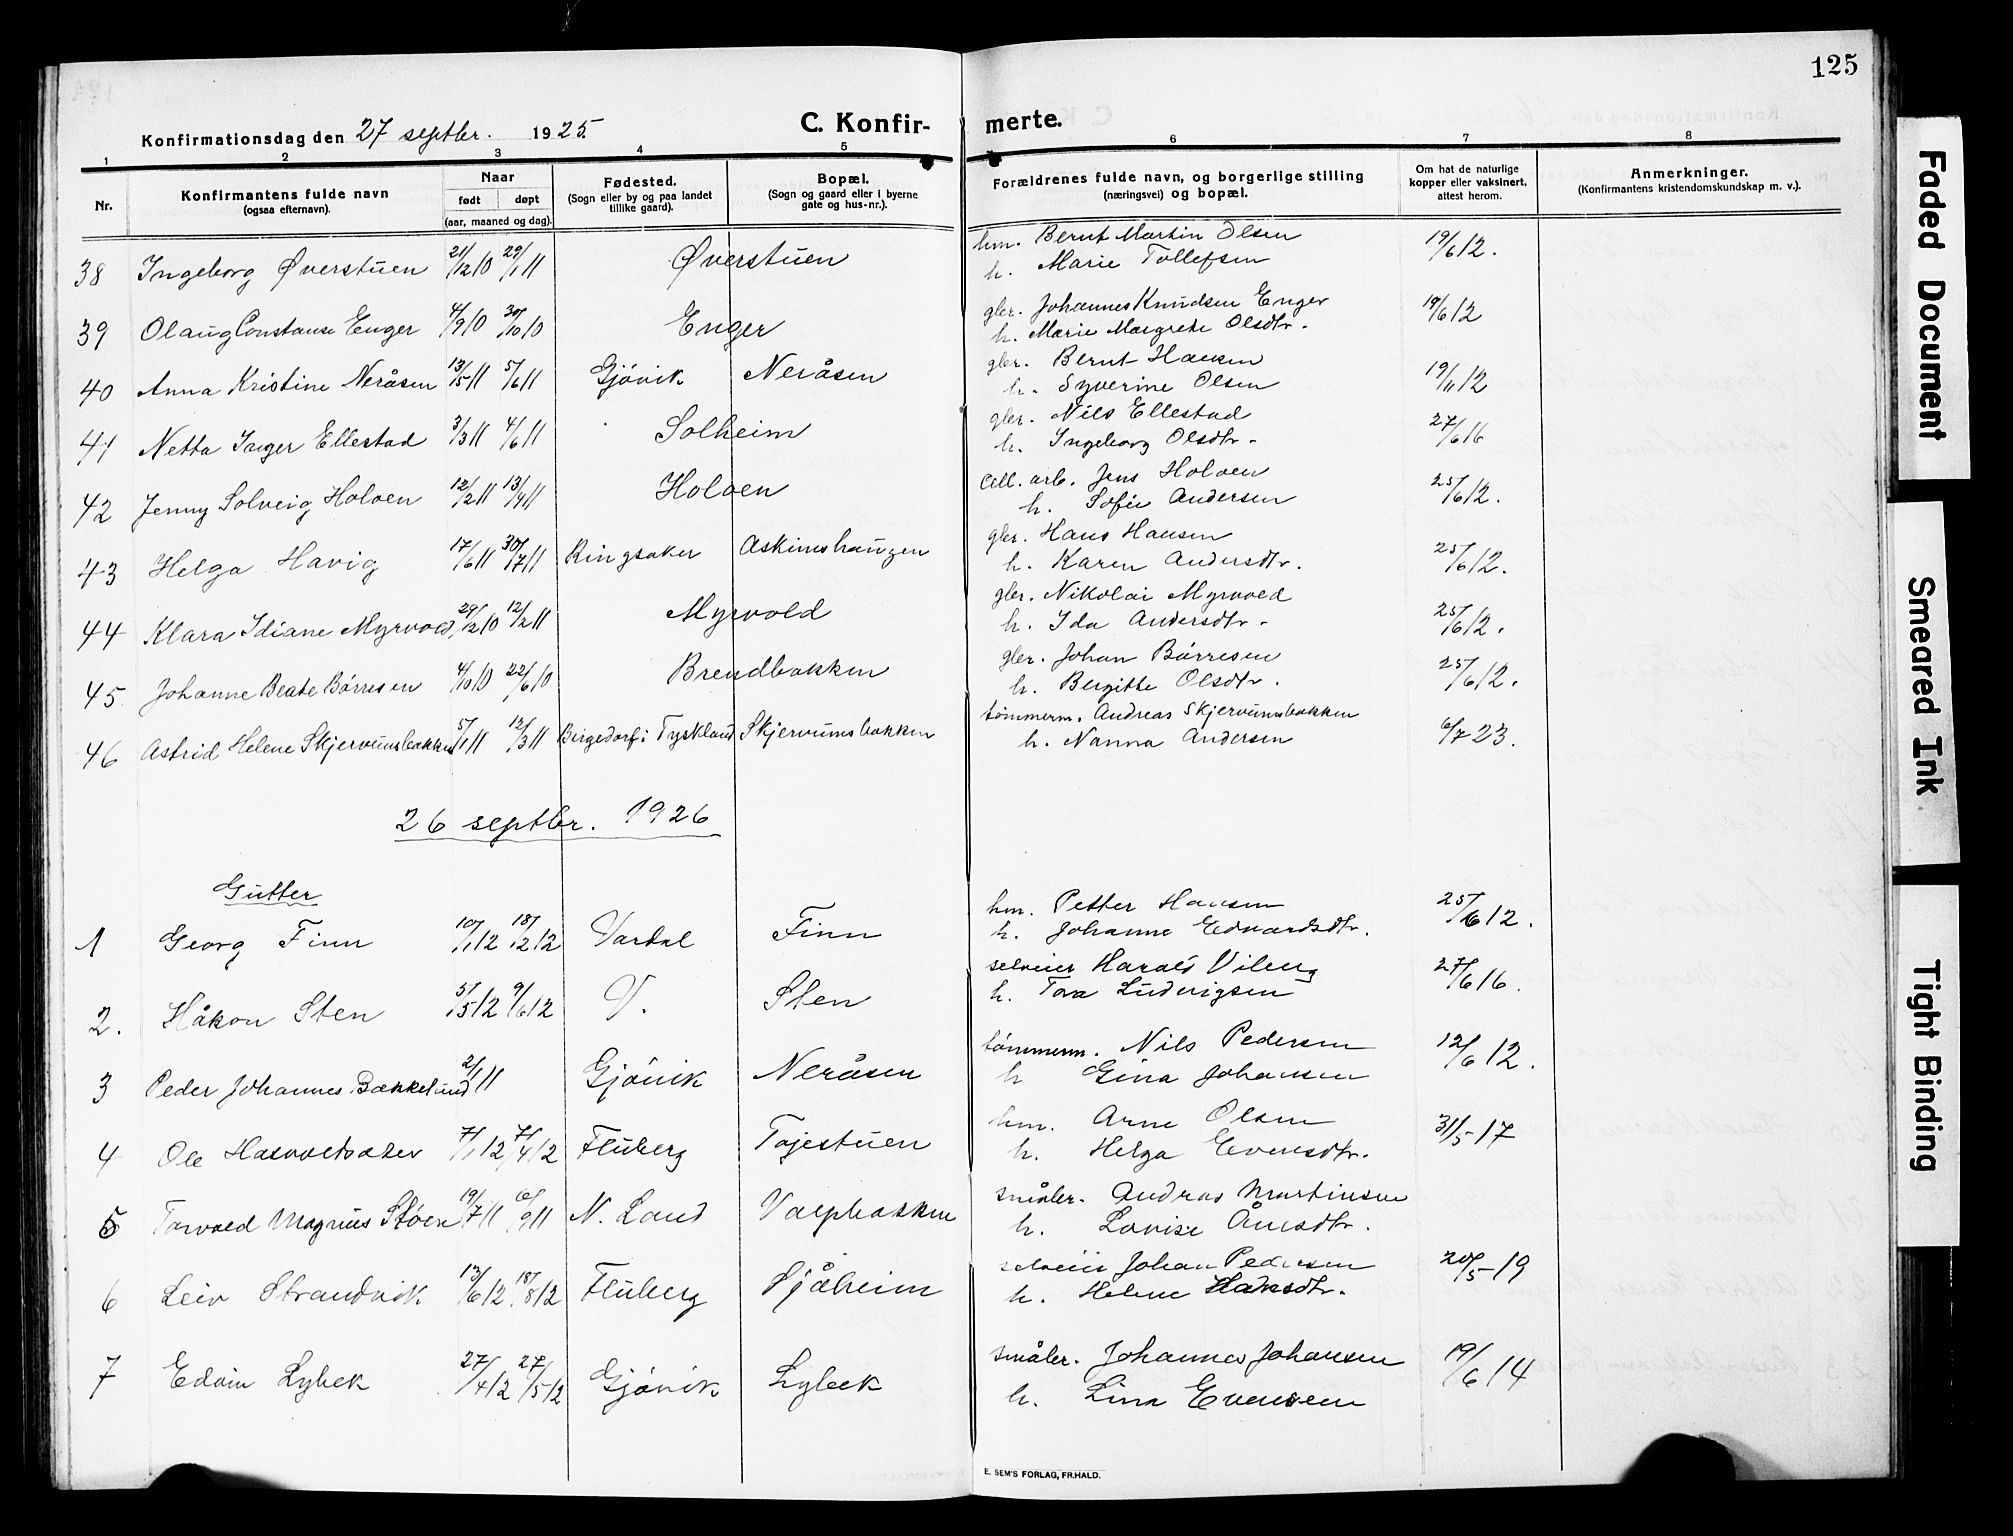 125
Konfirmationsdag den 27 septbr. 1925
C. Konfir-
merte.
1 2 3 4 5 6 7 8
Nr.
Konfirmantens fulde navn
(ogsaa efternavn).
Naar
født døpt
(aar, maaned og dag).
Fødested.
(Sogn eller by og paa landet
tillike gaard).
Bopæl.
(Sogn og gaard eller i byerne
gate og hus-nr.).
Forældrenes fulde navn, og borgerlige stilling
(næringsvei) og bopæl.
Om hat de naturlige
kopper eller vaksinert,
attest herom.
Anmerkninger.
(Konfirmantens kristendomskundskap m. v.).
38 Ingeborg Øverstuen 21/12 10 29/1 11 Øverstuen hm. Bernt Martin Olsen 19/6 12.
h. Marie Tollefsen
39 Olaug Constanse Enger 4/9 10 30/10 10 Enger gler. Johannes Knudsen Enger 19/6 12
h. Marie Margrete Olsdtr.
40 Anna Kristine Neråsen 13/5 11 5/6 11 Gjövik Neråsen gler. Bernt Hansen 19/11 12
h. Syverine Olsen
41 Netta Inger Ellestad 3/3 11 4/6 11 Solheim gler. Nils Ellestad 27/6 16
h. Ingeborg Olsdtr.
42 Jenny Solveig Holven 12/2 11 13/4 11 Holven Cell. arb. Jens Holven 25/6 12.
h. Sofie Andersen
43 Helga Havig 17/6 11 30/7 11 Ringsaker Askimshaugen gler. Hans Hansen 25/6 12.
h. Karen Andersdtr.
44 Klara Idiane Myrvold 29/12 10 12/2 11 Myrvold gler. Nikolai Myrvold 25/6 12.
h. Ida Andersdtr.
45 Johanne Beate Börresen 4/10 10 22/6 10 Brendbakken gler. Johan Börresen 25/6 12.
h. Bergitte Olsdtr.
46 Astrid Helene Skjervumsbakken 5/1 11 12/3 11 Bergedorf i Tyskland Skjervumsbakken tömmerm. Andreas Skjervumsbakken 6/7 23.
h. Nanna Andersen
26 septbr. 1926
Gutter
1 Georg Finn 10/1 12 18/2 12 Vardal Finn hm. Petter Hansen 25/6 12.
h. Johanne Edvardsdtr.
2. Håkon Sten 5/5 12 9/6 12 V. Sten selveier Harald Viberg 27/6 16.
h. Tora Ludvigsen
3 Peder Johannes Bakkelund 2/1 11 Gjövik Neråsen tömmerm. Nils Pedersen 12/6 12.
h Gina Johansen
4 Ole 7/1 12 7/4 12 Fluberg Tajestuen hm. Arne Olsen 31/5 - 17
h. Helga Evensdtr.
5 Torvald Magnus Stöen 19/7 11 6/9 11 N. Land småler. Andreas Martinsen
h. Lovise
6 Leiv Strandvik 13/6 12 18/8 12 Fluberg Sjåheim selveier Johan Pedersen 20/5 - 19
h. Helene Hansdtr.
7 Edvin Lybek 27/4 12 27/5 12 Gjövik Lybeck småler. Johannes Johansen 19/6 14
h. Lina Evensen
E. SEM'S FORLAG, FR.HALD.
Faded Document
Smeared Ink
Tight Binding